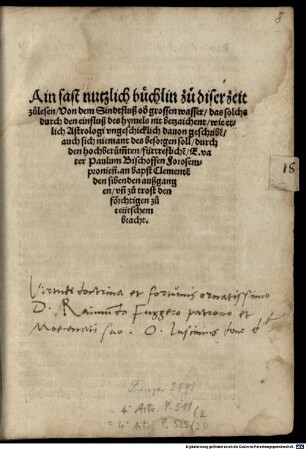 8
Ain fast nutzlich büchlin zů diser zeit
zůlesen/Von dem Sindtfluß oď grossen wasser/das solchs
durch den einfluß des hymels nit betzaichent/wie etz
lich Astrologi vngeschicklich dauon geschribẽ/
auch sich niemant des besorgen soll/durch
den hochberůmtẽ/fürtreflichẽ/E.va
ter Paulum Bischoffen Forosem-
proniẽn.an bapst Clementẽ
den sibenden außgang
en/vñ zů trost den
förchtigen zů
teütschem
bracht.
18
Virtute doctrina et fortunis ornatissimo
D. Raimundo Fuggero patrono et
Moecenati suo. O. Lusinius dono dt
Panzer 2591
4° Astr. P. 511
= 4° Astr. P. 525/20